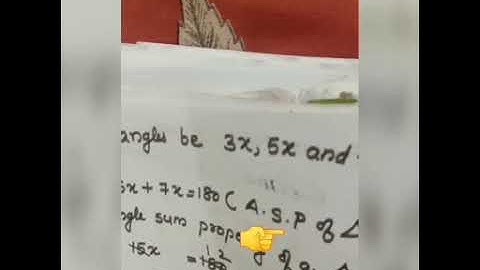 angles be 3x, 5x and
5x + 7x = 180 ( A. S. P of Δ
ngle sum prope of
+5x = 12